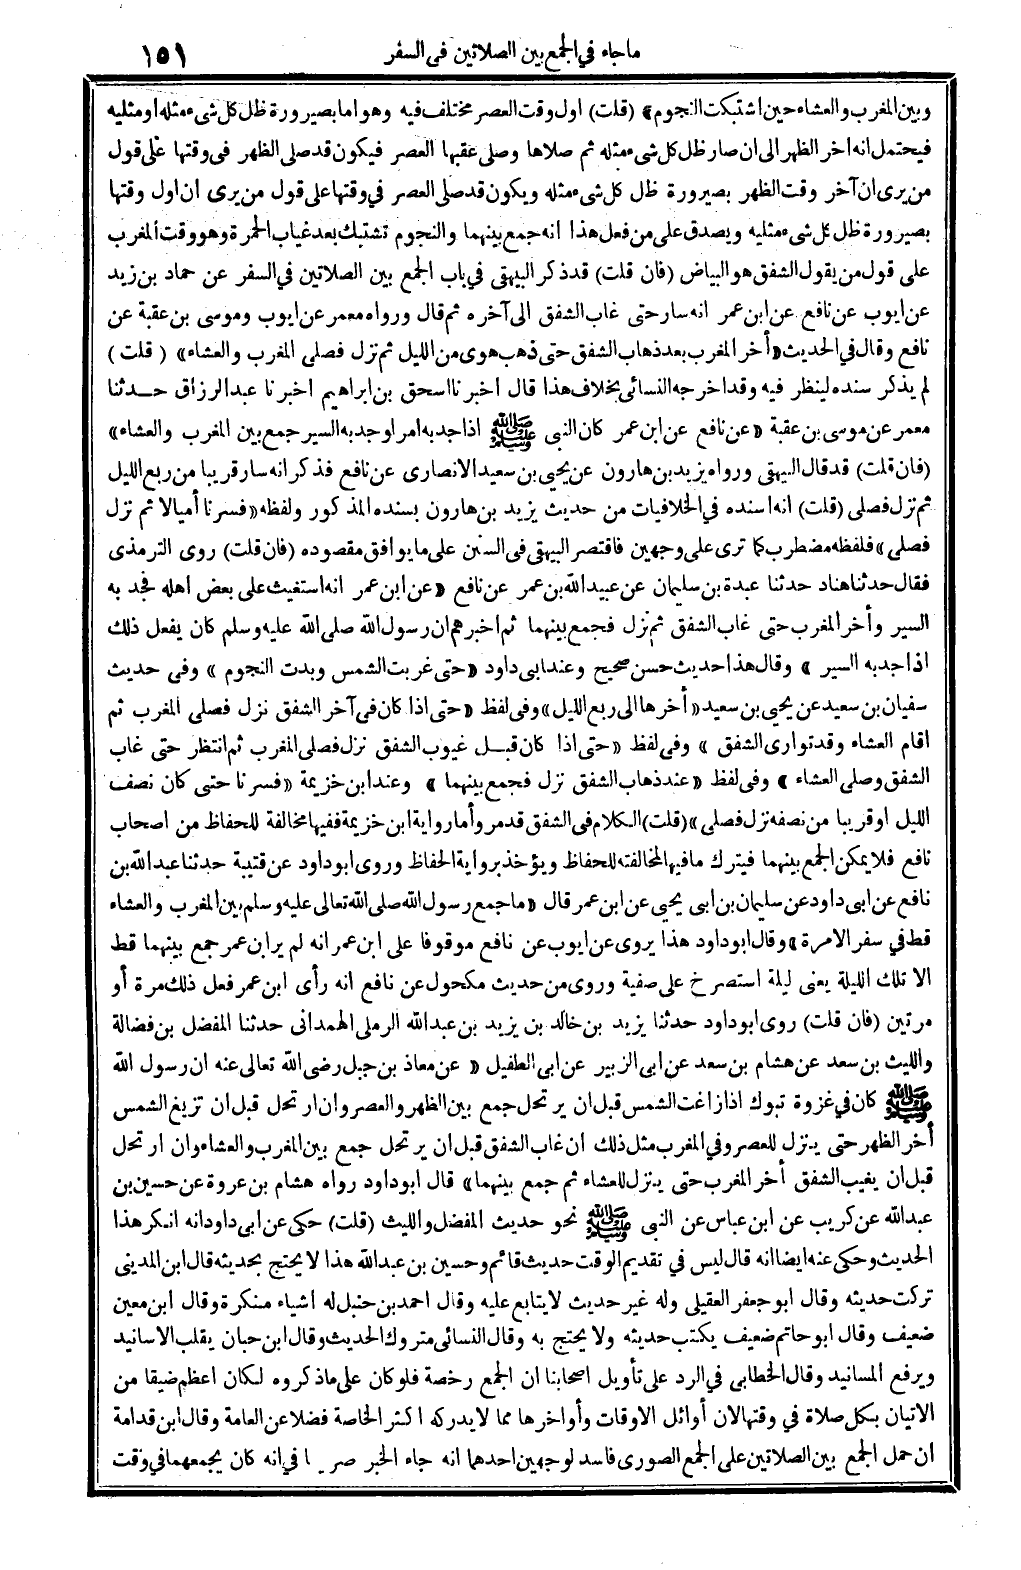 ما جاء في الجمع بين الصلاتين في السفر ١٥١
وبين المغرب والعشاء حين اشتبكت النجوم» (قلت) اول وقت العصر مختلف فيه وهو اما بصيرورة ظل كل شيء مثله او مثليه
فيحتمل انه اخر الظهر الى ان صار ظل كل شيء مثله ثم صلاها وصلى عقبها العصر فيكون قد صلى الظهر في وقتها على قول
من يرى ان آخر وقت الظهر بصيرورة ظل كل شيء مثله ويكون قد صلى العصر في وقتها على قول من يرى ان اول وقتها
بصيرورة ظل كل شيء مثليه ويصدق على من فعل هذا انه جمع بينهما والنجوم تشتبك بعد غياب الحمرة وهو وقت المغرب
على قول من يقول الشفق هو البياض (فان قلت) قد ذكر البيهقي في باب الجمع بين الصلاتين في السفر عن حماد بن زيد
عن ايوب عن نافع عن ابن عمر انه سار حتى غاب الشفق الى آخره ثم قال ورواه معمر عن ايوب وموسى بن عقبة عن
نافع وقال في الحديث «أخر المغرب بعد ذهاب الشفق حتى ذهب هوى من الليل ثم نزل فصلى المغرب والعشاء» (قلت)
لم يذكر سنده لينظر فيه وقد اخرجه النسائى بخلاف هذا قال اخبرنا اسحق بن ابراهيم اخبرنا عبد الرزاق حدثنا
معمر عن موسى بن عقبة «عن نافع عن ابن عمر كان النبى ﷺ اذا جد به امر او جد به السير جمع بين المغرب والعشاء»
(فان قلت) قد قال البيهقي ورواه يزيد بن هارون عن يحيى بن سعيد الانصارى عن نافع فذكر انه سار قريبا من ربع الليل
ثم نزل فصلى (قلت) انه اسنده في الخلافيات من حديث يزيد بن هارون بسنده المذكور ولفظه «فسرنا أميالا ثم نزل
فصلى» فلفظه مضطرب كما ترى على وجهين فاقتصر البيهقي في السنن على ما يوافق مقصوده (فان قلت) روى الترمذى
فقال حدثنا هناد حدثنا عبدة بن سليمان عن عبيد الله بن عمر عن نافع «عن ابن عمر انه استغيث على بعض اهله فجد به
السير وأخر المغرب حتى غاب الشفق ثم نزل فجمع بينهما ثم اخبرهم ان رسول الله صلى الله عليه وسلم كان يفعل ذلك
اذا جد به السير» وقال هذا حديث حسن صحيح وعند ابى داود «حتى غربت الشمس وبدت النجوم» وفى حديث
سفيان بن سعيد عن يحيى بن سعيد «أخرها الى ربع الليل» وفى لفظ «حتى اذا كان فى آخر الشفق نزل فصلى المغرب ثم
اقام العشاء وقد توارى الشفق» وفى لفظ «حتى اذا كان قبل غيوب الشفق نزل فصلى المغرب ثم انتظر حتى غاب
الشفق وصلى العشاء» وفى لفظ «عند ذهاب الشفق نزل فجمع بينهما» وعند ابن خزيمة «فسرنا حتى كان نصف
الليل او قريبا من نصفه نزل فصلى» (قلت) الكلام فى الشفق قد مر وأما رواية ابن خزيمة ففيها مخالفة للحفاظ من اصحاب
نافع فلا يمكن الجمع بينهما فيترك ما فيها المخالفته للحفاظ ويؤخذ برواية الحفاظ وروى ابو داود عن قتيبة حدثنا عبد الله بن
نافع عن ابى داود عن سليمان بن ابى يحيى عن ابن عمر قال «ما جمع رسول الله صلى الله تعالى عليه وسلم بين المغرب والعشاء
قط في سفر الا مرة» وقال ابو داود هذا يروى عن ايوب عن نافع موقوفا على ابن عمر انه لم ير ابن عمر جمع بينهما قط
الا تلك الليلة يعنى ليلة استصرخ على صفية وروى من حديث مكحول عن نافع انه رأى ابن عمر فعل ذلك مرة أو
مرتين (فان قلت) روى ابو داود حدثنا يزيد بن خالد بن يزيد بن عبد الله الرملى الهمدانى حدثنا المفضل بن فضالة
والليث بن سعد عن هشام بن سعد عن ابى الزبير عن ابى الطفيل «عن معاذ بن جبل رضى الله تعالى عنه ان رسول الله
ﷺ كان في غزوة تبوك اذا زاغت الشمس قبل ان يرتحل جمع بين الظهر والعصر وان ارتحل قبل ان تزيغ الشمس
أخر الظهر حتى ينزل للعصر وفي المغرب مثل ذلك ان غاب الشفق قبل ان يرتحل جمع بين المغرب والعشاء وان ارتحل
قبل ان يغيب الشفق أخر المغرب حتى ينزل للعشاء ثم جمع بينهما» قال ابو داود رواه هشام بن عروة عن حسين بن
عبد الله عن كريب عن ابن عباس عن النبى ﷺ نحو حديث المفضل والليث (قلت) حكى عن ابى داود انه انكر هذا
الحديث وحكى عنه ايضا انه قال ليس في تقديم الوقت حديث قائم وحسين بن عبد الله هذا لا يحتج بحديثه قال ابن المدينى
تركت حديثه وقال ابو جعفر العقيلى وله غير حديث لا يتابع عليه وقال احمد بن حنبل له اشياء منكرة وقال ابن معين
ضعيف وقال ابو حاتم ضعيف يكتب حديثه ولا يحتج به وقال النسائى متروك الحديث وقال ابن حبان يقلب الاسانيد
ويرفع المسانيد وقال الخطابى في الرد على تأويل اصحابنا ان الجمع رخصة فلو كان على ما ذكروه لكان اعظم ضيقا من
الاتيان بكل صلاة في وقتها لان أوائل الاوقات وأواخرها مما لا يدركه اكثر الخاصة فضلا عن العامة وقال ابن قدامة
ان حمل الجمع بين الصلاتين على الجمع الصورى فاسد لوجهين احدهما انه جاء الخبر صريحا في انه كان يجمعهما في وقت